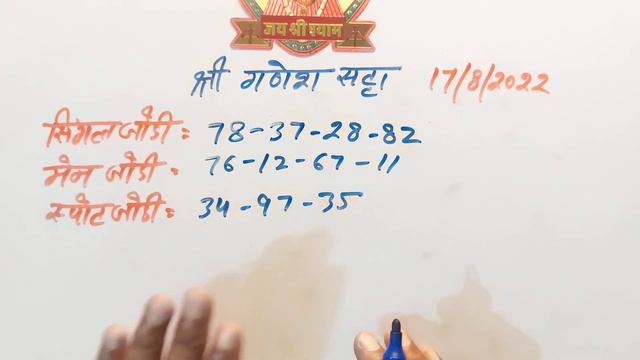 जय श्री श्याम
श्री गणेश सट्टा 17/8/2022
सिंगल जोडी = 78-37-28-82
मेन जोडी = 76-12-67-11
स्पोट जोडी = 34-97-35